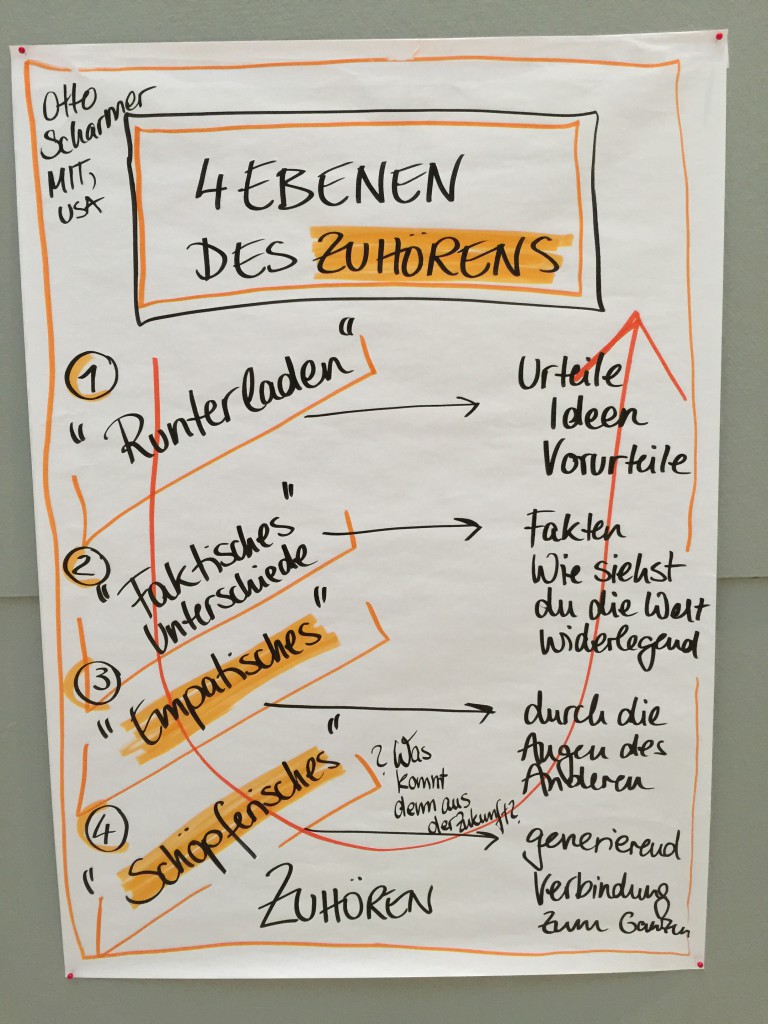 Otto
Scharmer
MIT,
USA
4 EBENEN
DES ZUHÖRENS
1
"Runterladen"
Urteile
Ideen
Vorurteile
2
"Faktisches"
Unterschiede
Fakten
Wie siehst
du die Welt
widerlegend
3
"Empatisches"
durch die
Augen des
Anderen
4
"Schöpferisches"
? Was
kommt
denn aus
der Zukunft?
generierend
Verbindung
zum Ganzen
ZUHÖREN